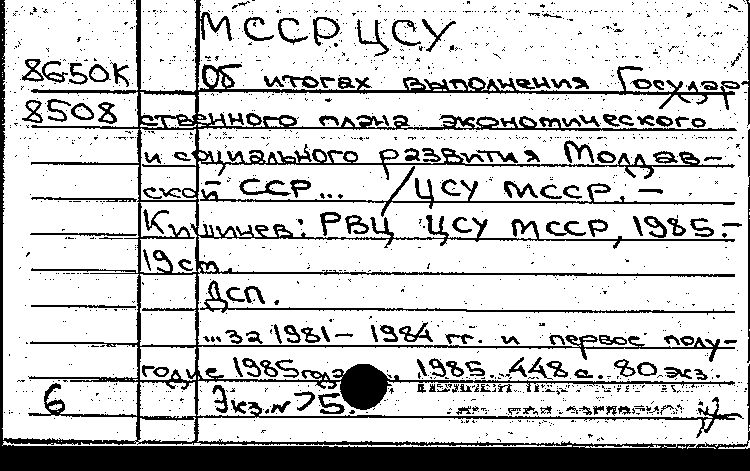 МССР ЦСУ
8650К Об итогах выполнения Государ-
8508 ственного плана экономического
и социального развития Молдав-
ской ССР... / ЦСУ МССР. –
Кишинев: РВЦ ЦСУ МССР, 1985. –
19 ст.
ДСП.
...за 1981 – 1984 гг. и первое полу-
годие 1985 года. 1985. 448 с. 80 экз.
6 Экз. №75.